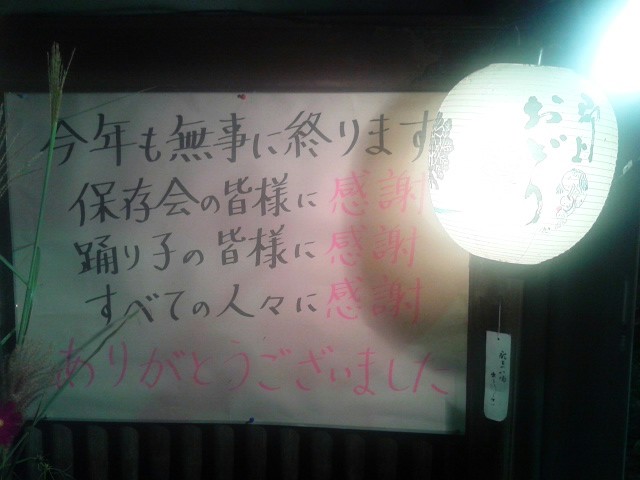 今年も無事に終ります
保存会の皆様に感謝
踊り子の皆様に感謝
すべての人々に感謝
ありがとうございました
郡上
おどり